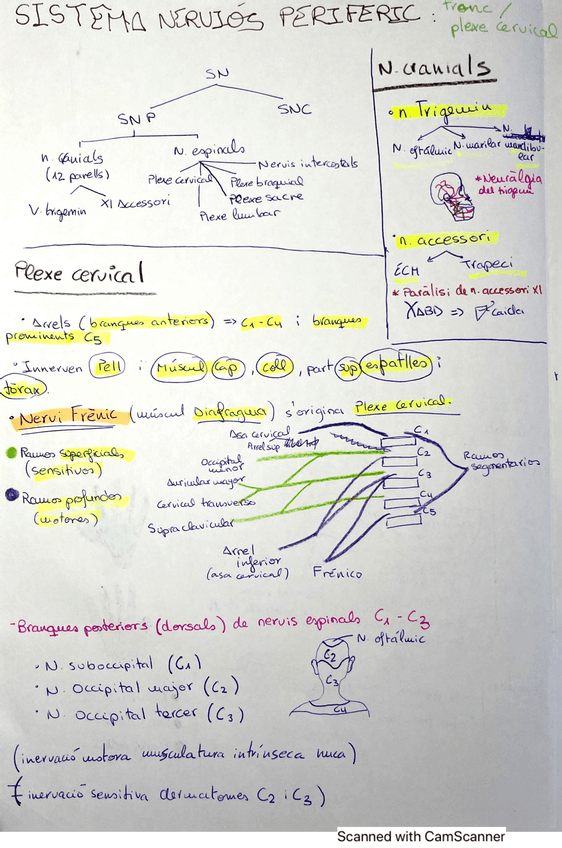 SISTEMA NERVIÓS PERIFERIC : tronc /
plexe cervical
SN
SNP
SNC
n. cranials
(12 parells)
N. espinals
V. trigemin
XI Accessori
Plexe cervical
Nervis intercostals
Plexe braquial
Plexe sacre
Plexe lumbar
N. cranials
• n. Trigemin
N. oftálmic
N. maxilar
N.
mandibu-
lar
* Neuràlgia
del trigemin
• n. accessori
ECM
Trapeci
* Paràlisi de n. accessori XI
XABD => caiden
Plexe cervical
• Arrels (branques anteriors) => C1-C4 i branques
prominents C5
• Innerven Pell i Múscul cap, coll, part sup espatlles i
tòrax.
• Nervi Frènic (múscul Diafragua) s'origina Plexe cervical.
Ramos superficials
(sensitivos)
Ramos profundos
(motores)
Asa cervical
Arrel sup
Occipital
minor
Auricular major
Cervical transverso
Supraclavicular
Arrel
inferior
(asa cervical)
Frénico
C1
C2
C3
C4
C5
Ramos
segmentarios
- Branques posteriors (dorsals) de nervis espinals C1 - C3
• N. suboccipital (C1)
• N. Occipital major (C2)
• N. Occipital tercer (C3)
N. oftálmic
C2
C3
C4
(inervació motora musculatura intrínseca nuca)
(inervació sensitiva dermatomes C2 i C3)
Scanned with CamScanner